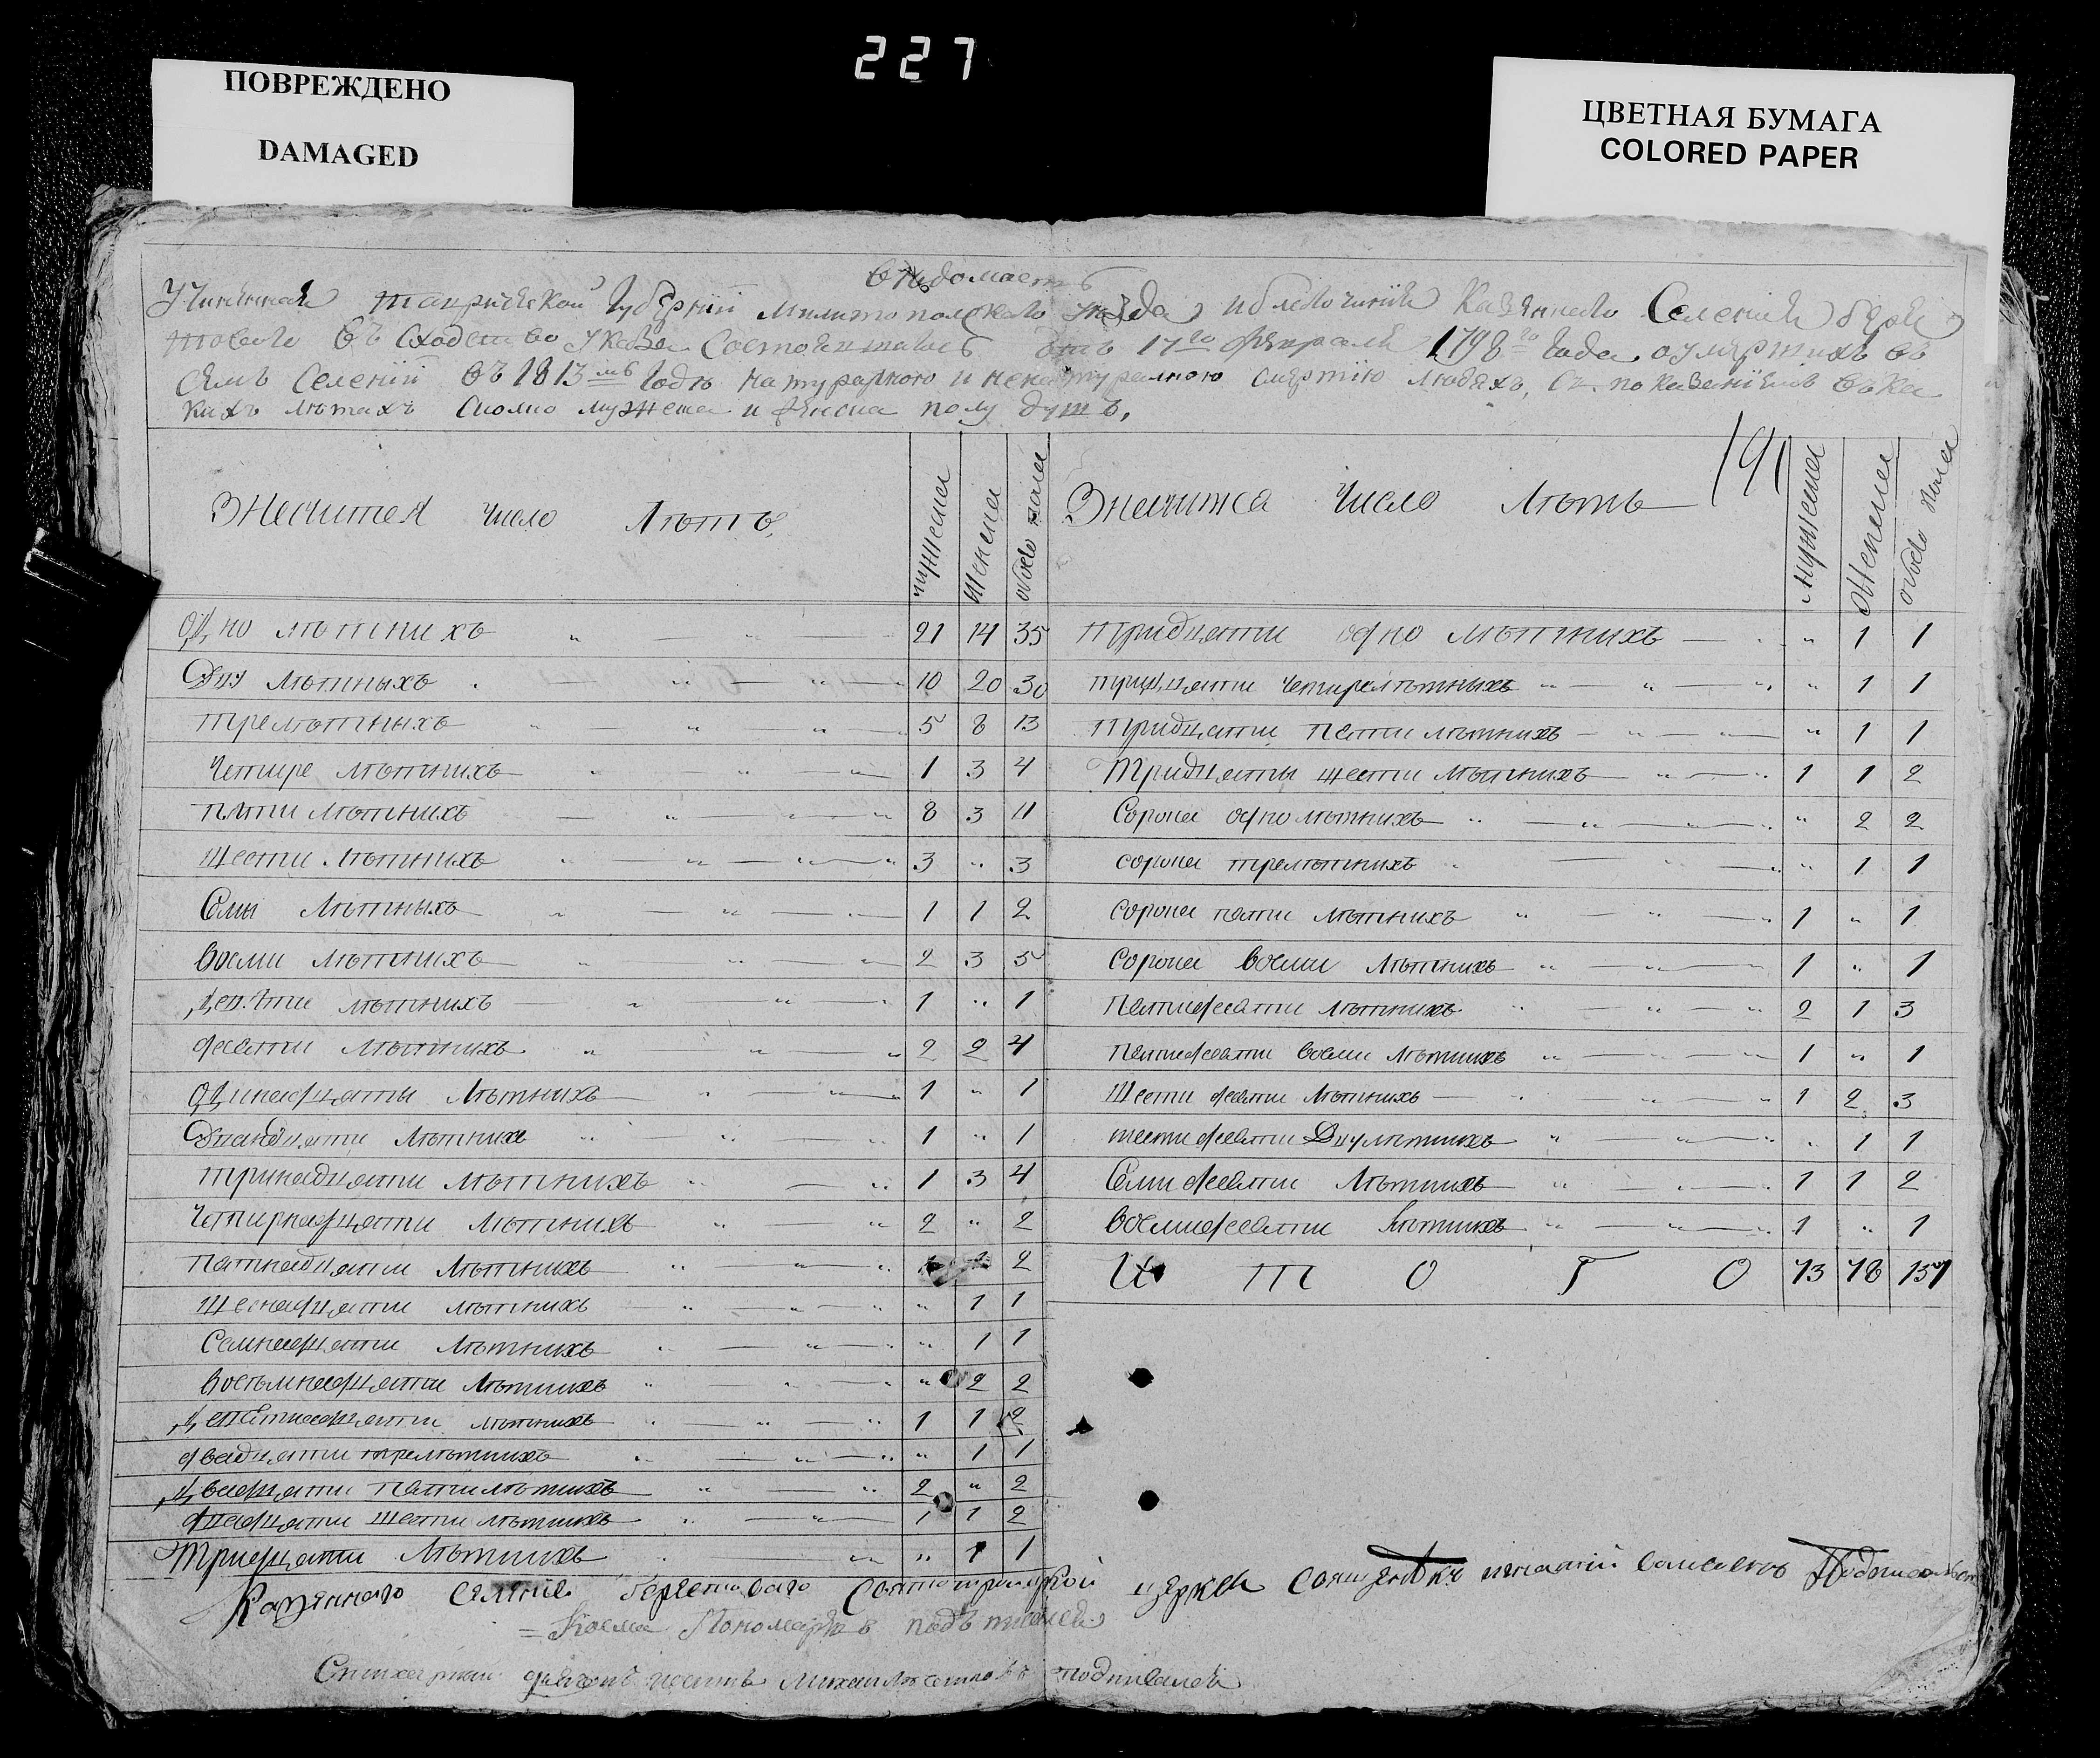 227
ПОВРЕЖДЕНО
DAMAGED
ЦВЕТНАЯ БУМАГА
COLORED PAPER
вѣдомасть
Учиненная Таврической губернии Мелитополского уезда Казенного Селения
въ сходство указа состоявшагось 17го февраля 1798го года о умершихъ въ
семъ селении въ 1813мъ годъ натуралною и ненатуралною смертию людехъ, съ показаниемъ въ ка
кихъ лѣтахъ сколко мужеска и женска полу душъ,
191
Значится число Лѣтъ мужеска Женска обоего пола
Значитса Число Лѣтъ мужеска Женска обоего пола
одно лѣтнихъ 21 14 35
Дву лѣтныхъ 10 20 30
трелѣтныхъ 5 8 13
Четире лѣтнихъ 1 3 4
пяти лѣтнихъ 8 3 11
шести лѣтнихъ 3 " 3
Семи лѣтныхъ 1 1 2
восми лѣтнихъ 2 3 5
девяти лѣтнихъ 1 " 1
десяти лѣтнихъ 2 2 4
одинадцяти лѣтнихъ 1 " 1
Дванадцяти лѣтнихъ 1 " 1
тринадцяти лѣтнихъ 1 3 4
Четирнадцяти лѣтнихъ 2 " 2
патнадцяти лѣтнихъ 2
шеснадцяти лѣтнихъ " 1 1
Семнадцяти лѣтнихъ " 1 1
восъмнадцяти лѣтнихъ " 2 2
девятнадцяти лѣтнихъ 1 1 2
двадцяти трелѣтнихъ " 1 1
двадцяти пятилѣтнихъ 2 " 2
двадцяти шести лѣтнихъ 1 1 2
Тридцяти лѣтнихъ " 1 1
тридцяти одно лѣтнихъ " 1 1
тридцяти четирелѣтныхъ " 1 1
тридцяти пяти лѣтнихъ " 1 1
Тридцяты шести лѣтнихъ 1 1 2
Сорока одно лѣтнихъ " 2 2
сорока трелѣтнихъ " 1 1
сорока пяти лѣтнихъ 1 " 1
сорока восми лѣтнихъ 1 " 1
пятидесяти лѣтнихъ 2 1 3
пятидесяти восми лѣтнихъ 1 " 1
Шести десяти лѣтнихъ 1 2 3
шестидесяти Двулѣтнихъ " 1 1
Семидесяти лѣтнихъ 1 1 2
восмидесяти лѣтнихъ 1 " 1
И Т О Г О 73 78 151
Казенного селения Берестоваго церкви священникъ
Косма Пономаревъ подписалса
подписалса